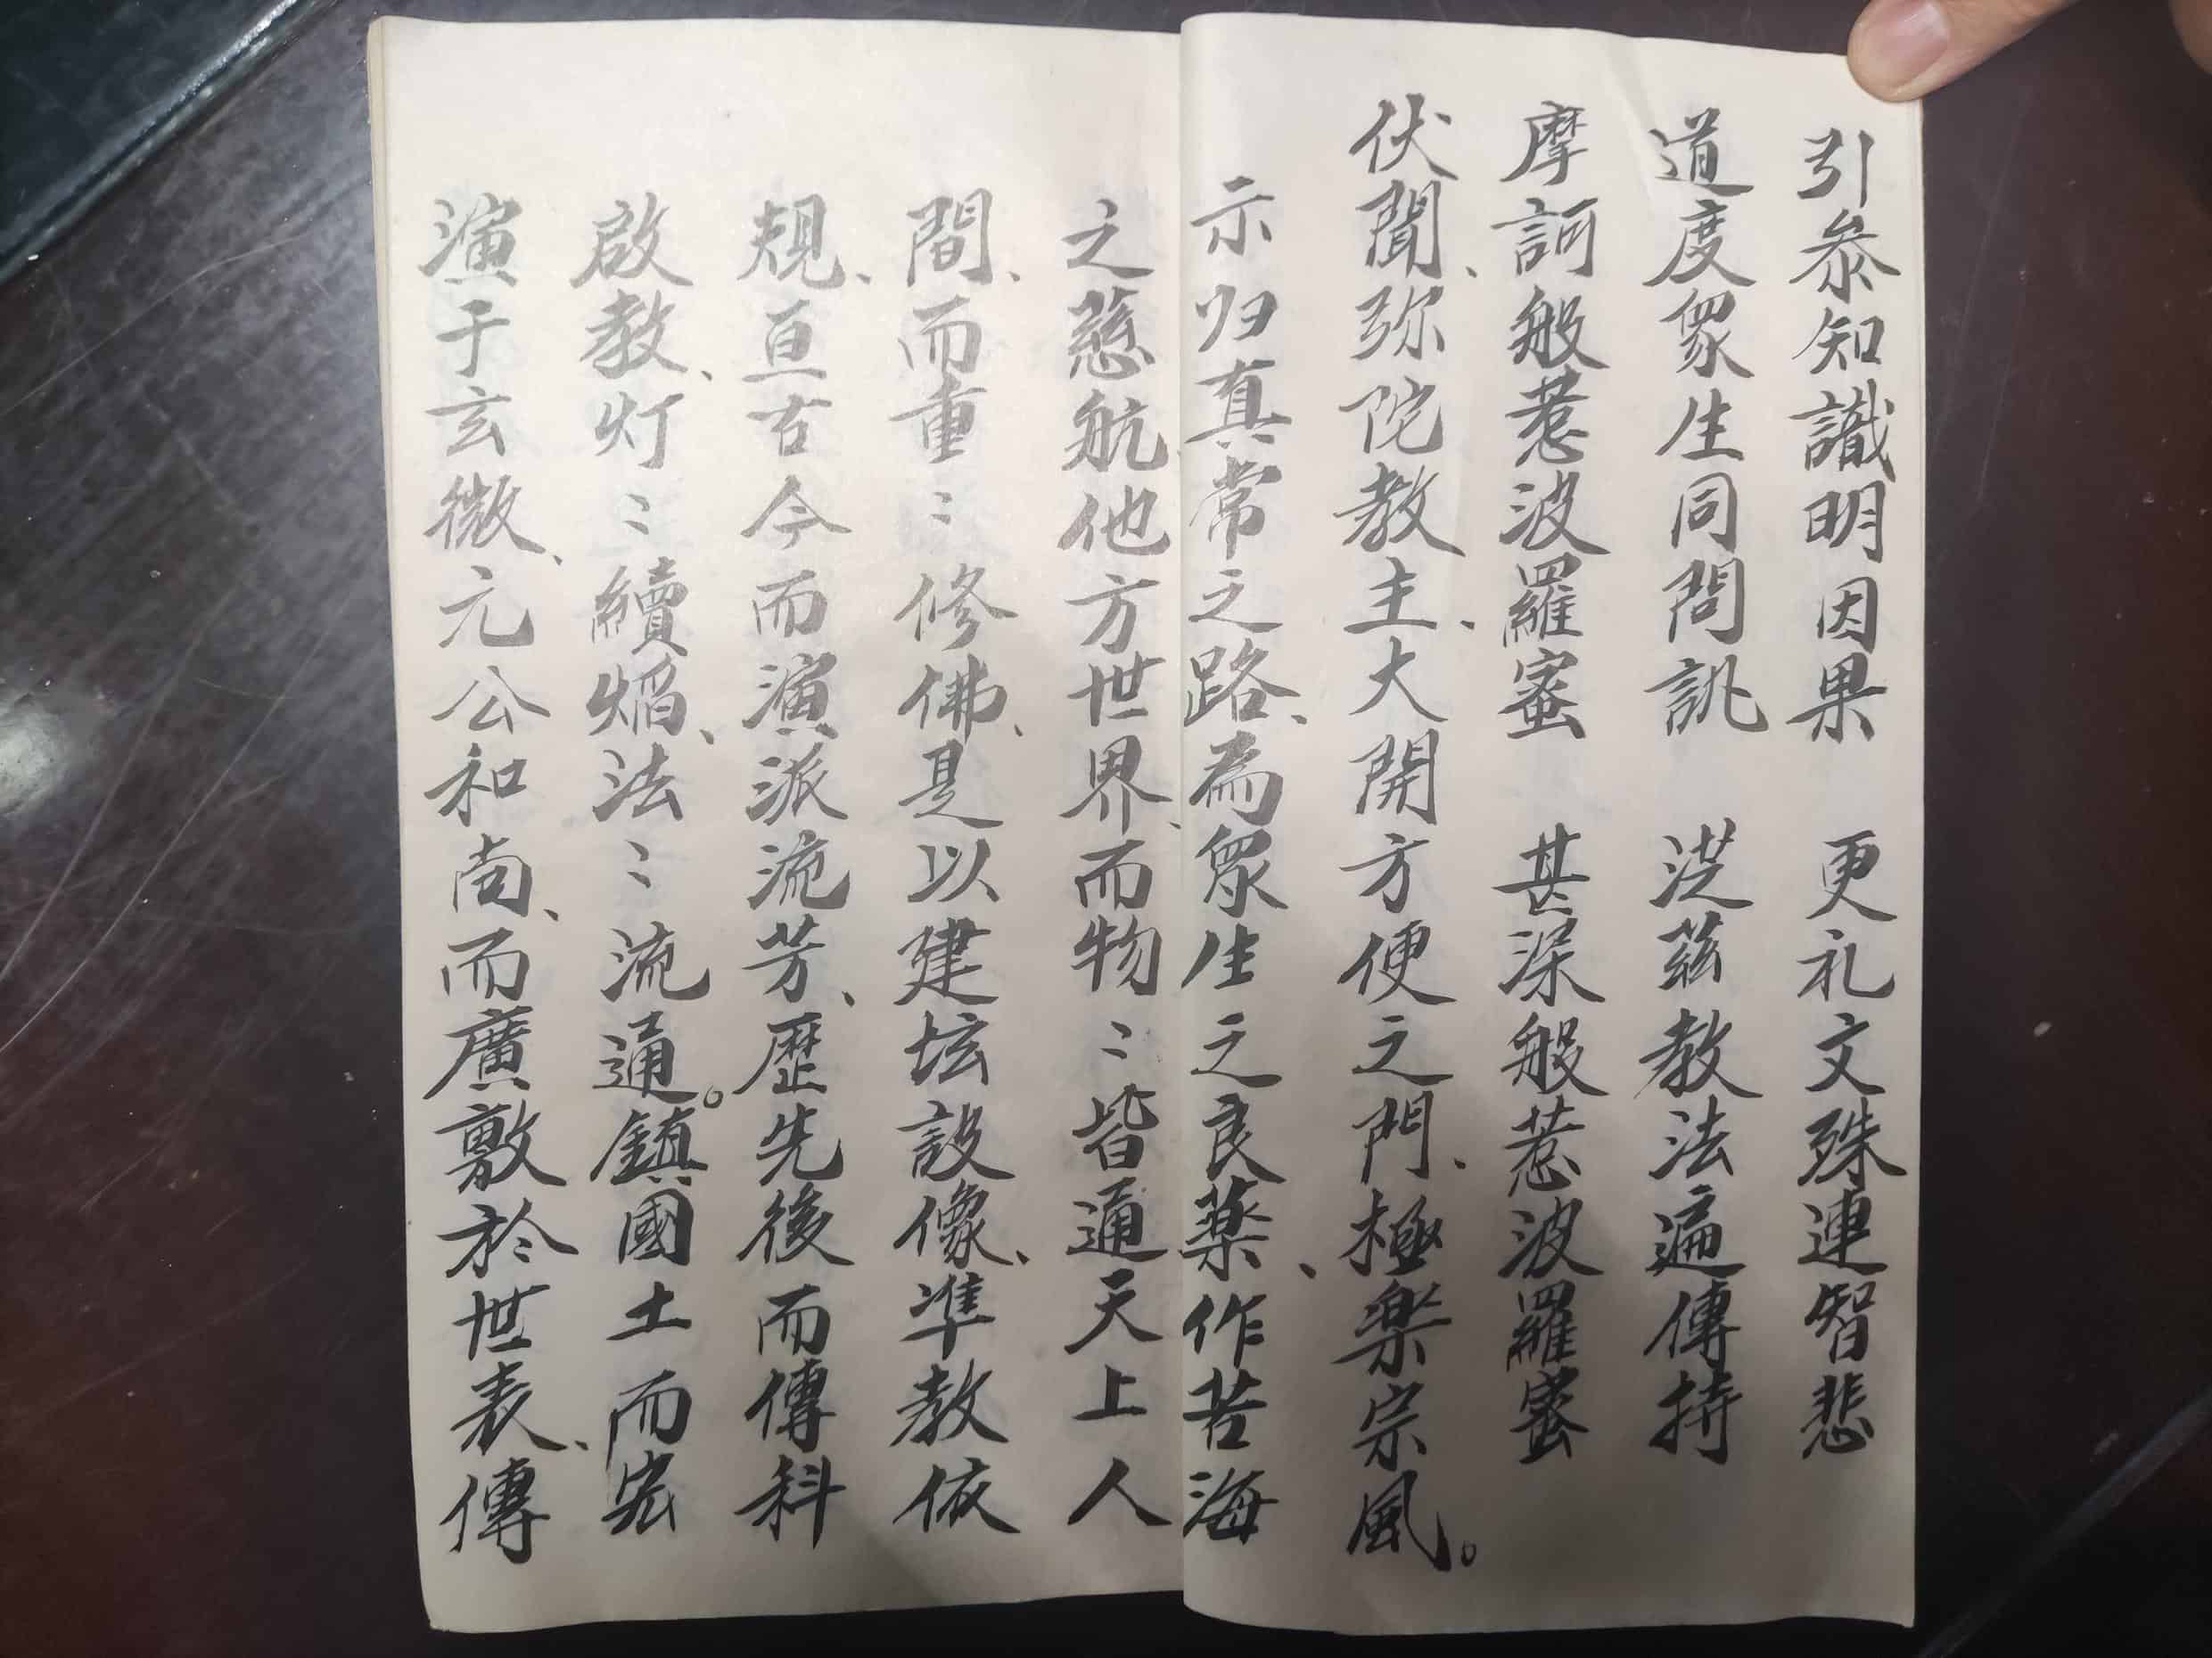 引叅知識明因果　更礼文殊連智悲
道度衆生同問訊　從兹教法遍傳持
摩訶般惹波羅蜜　甚深般惹波羅蜜
伏聞、弥陀教主、大開方便之門、極楽宗風。
示归真常之路、為衆生之良薬、作苦海
之慈航他方世界、而物〻皆通天上人
間、而重〻修佛、是以建坛設像、準教依
規、亘古今而演派流芳、歷先後而傳科
啟教、灯〻續焰、法〻流通。鎮國土而宏
演于玄微、元公和尚、而廣敷於世表、傳